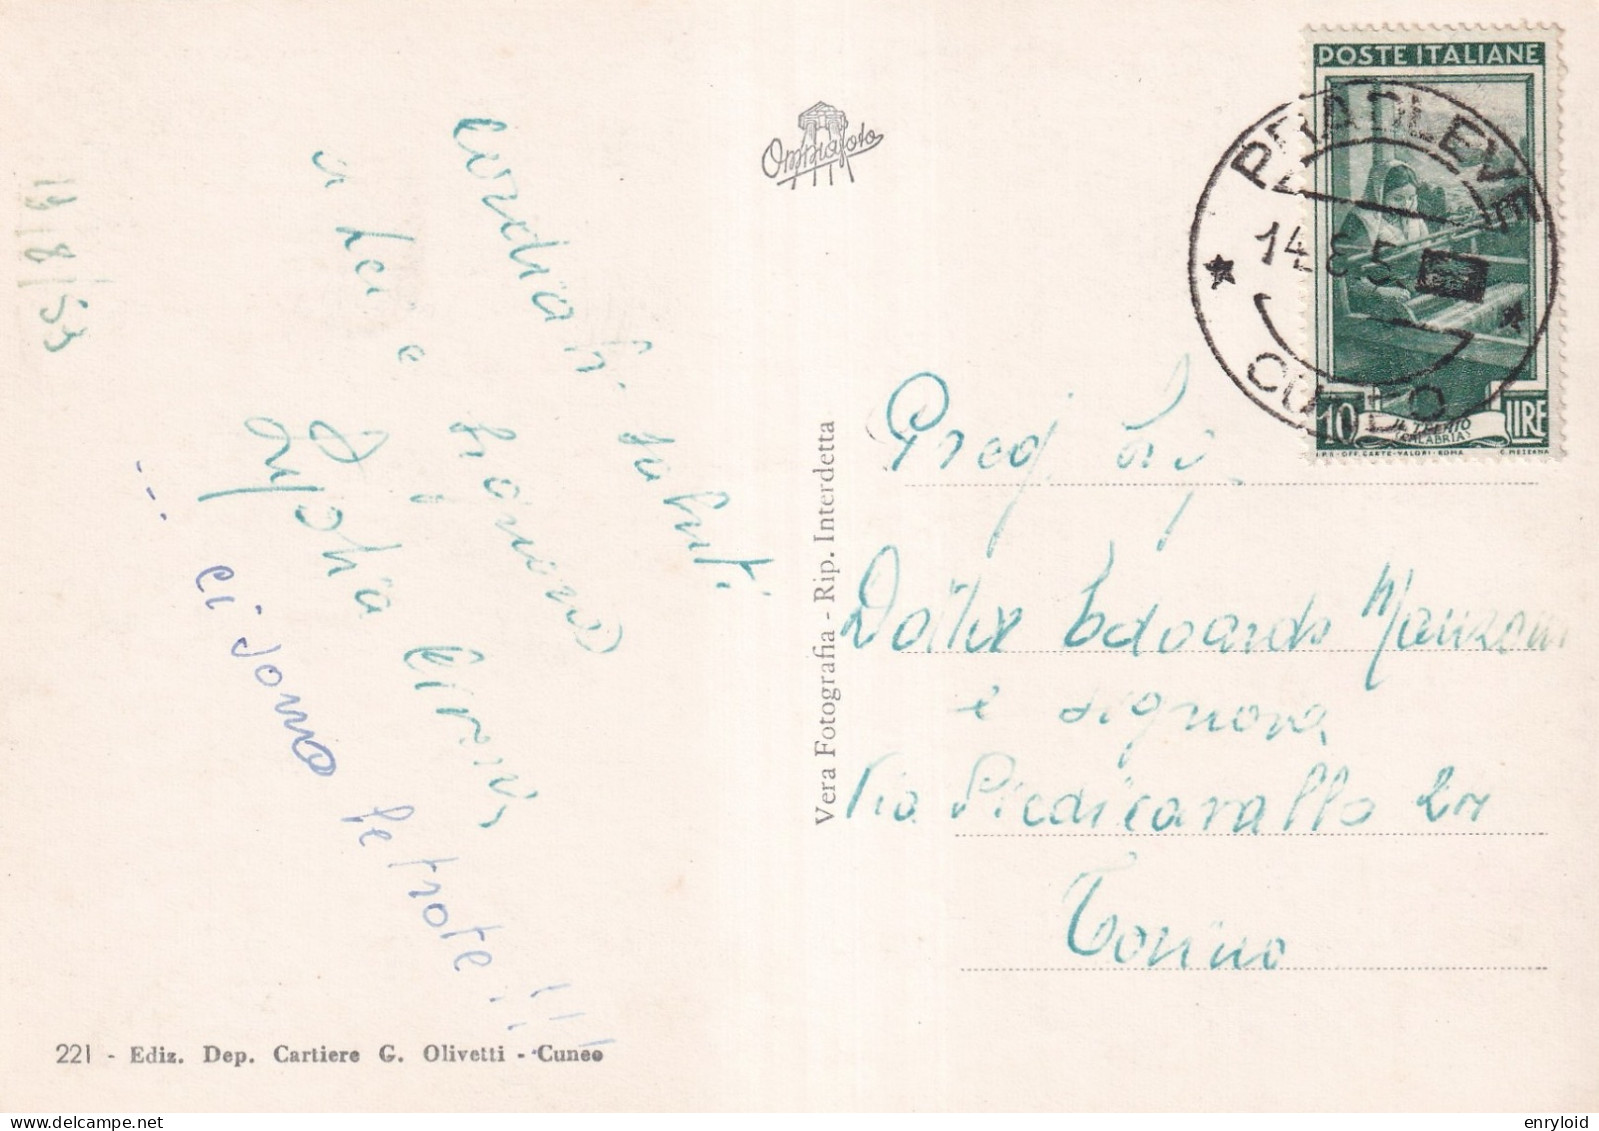 13/8/53
Cordiali saluti
a Lei e
Signora
... ci sono le trote!!!
221 - Ediz. Dep. Cartiere G. Olivetti - Cuneo
Omniafoto
Vera Fotografia - Rip. Interdetta
POSTE ITALIANE
10 LIRE
(CALABRIA)
I.P.S. - OFF. CARTE - VALORI - ROMA
C. MEZZANA
14.8.5
CUNEO
Preg Sig
Dottor Edoardo Manzoni
e Signora
Via Piedicavallo
Torino
enryloid
delcampe.net